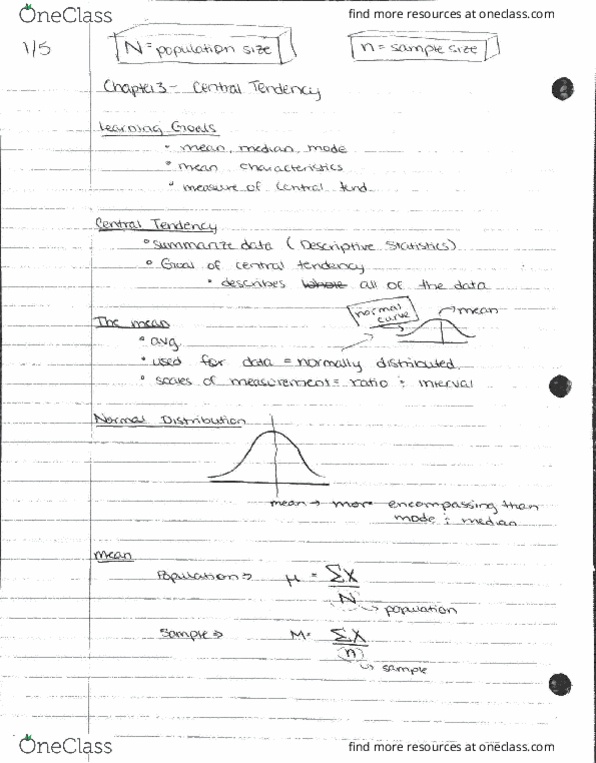 OneClass
find more resources at oneclass.com
1/5
N = population size
n = sample size
Chapter 3 - Central Tendency
Learning Goals
• mean, median, mode
• mean characteristics
• measure of central tend.
Central Tendency
• summarize data (Descriptive Statistics)
• Goal of central tendency
• describes whole all of the data
normal curve
mean
The mean
• avg
• used for data = normally distributed
• scales of measurement = ratio & interval
Normal Distribution
mean → more encompassing than
mode & median
mean
Population → μ = ΣX
N
→ population
Sample → M = ΣX
(n)
→ sample
OneClass
find more resources at oneclass.com